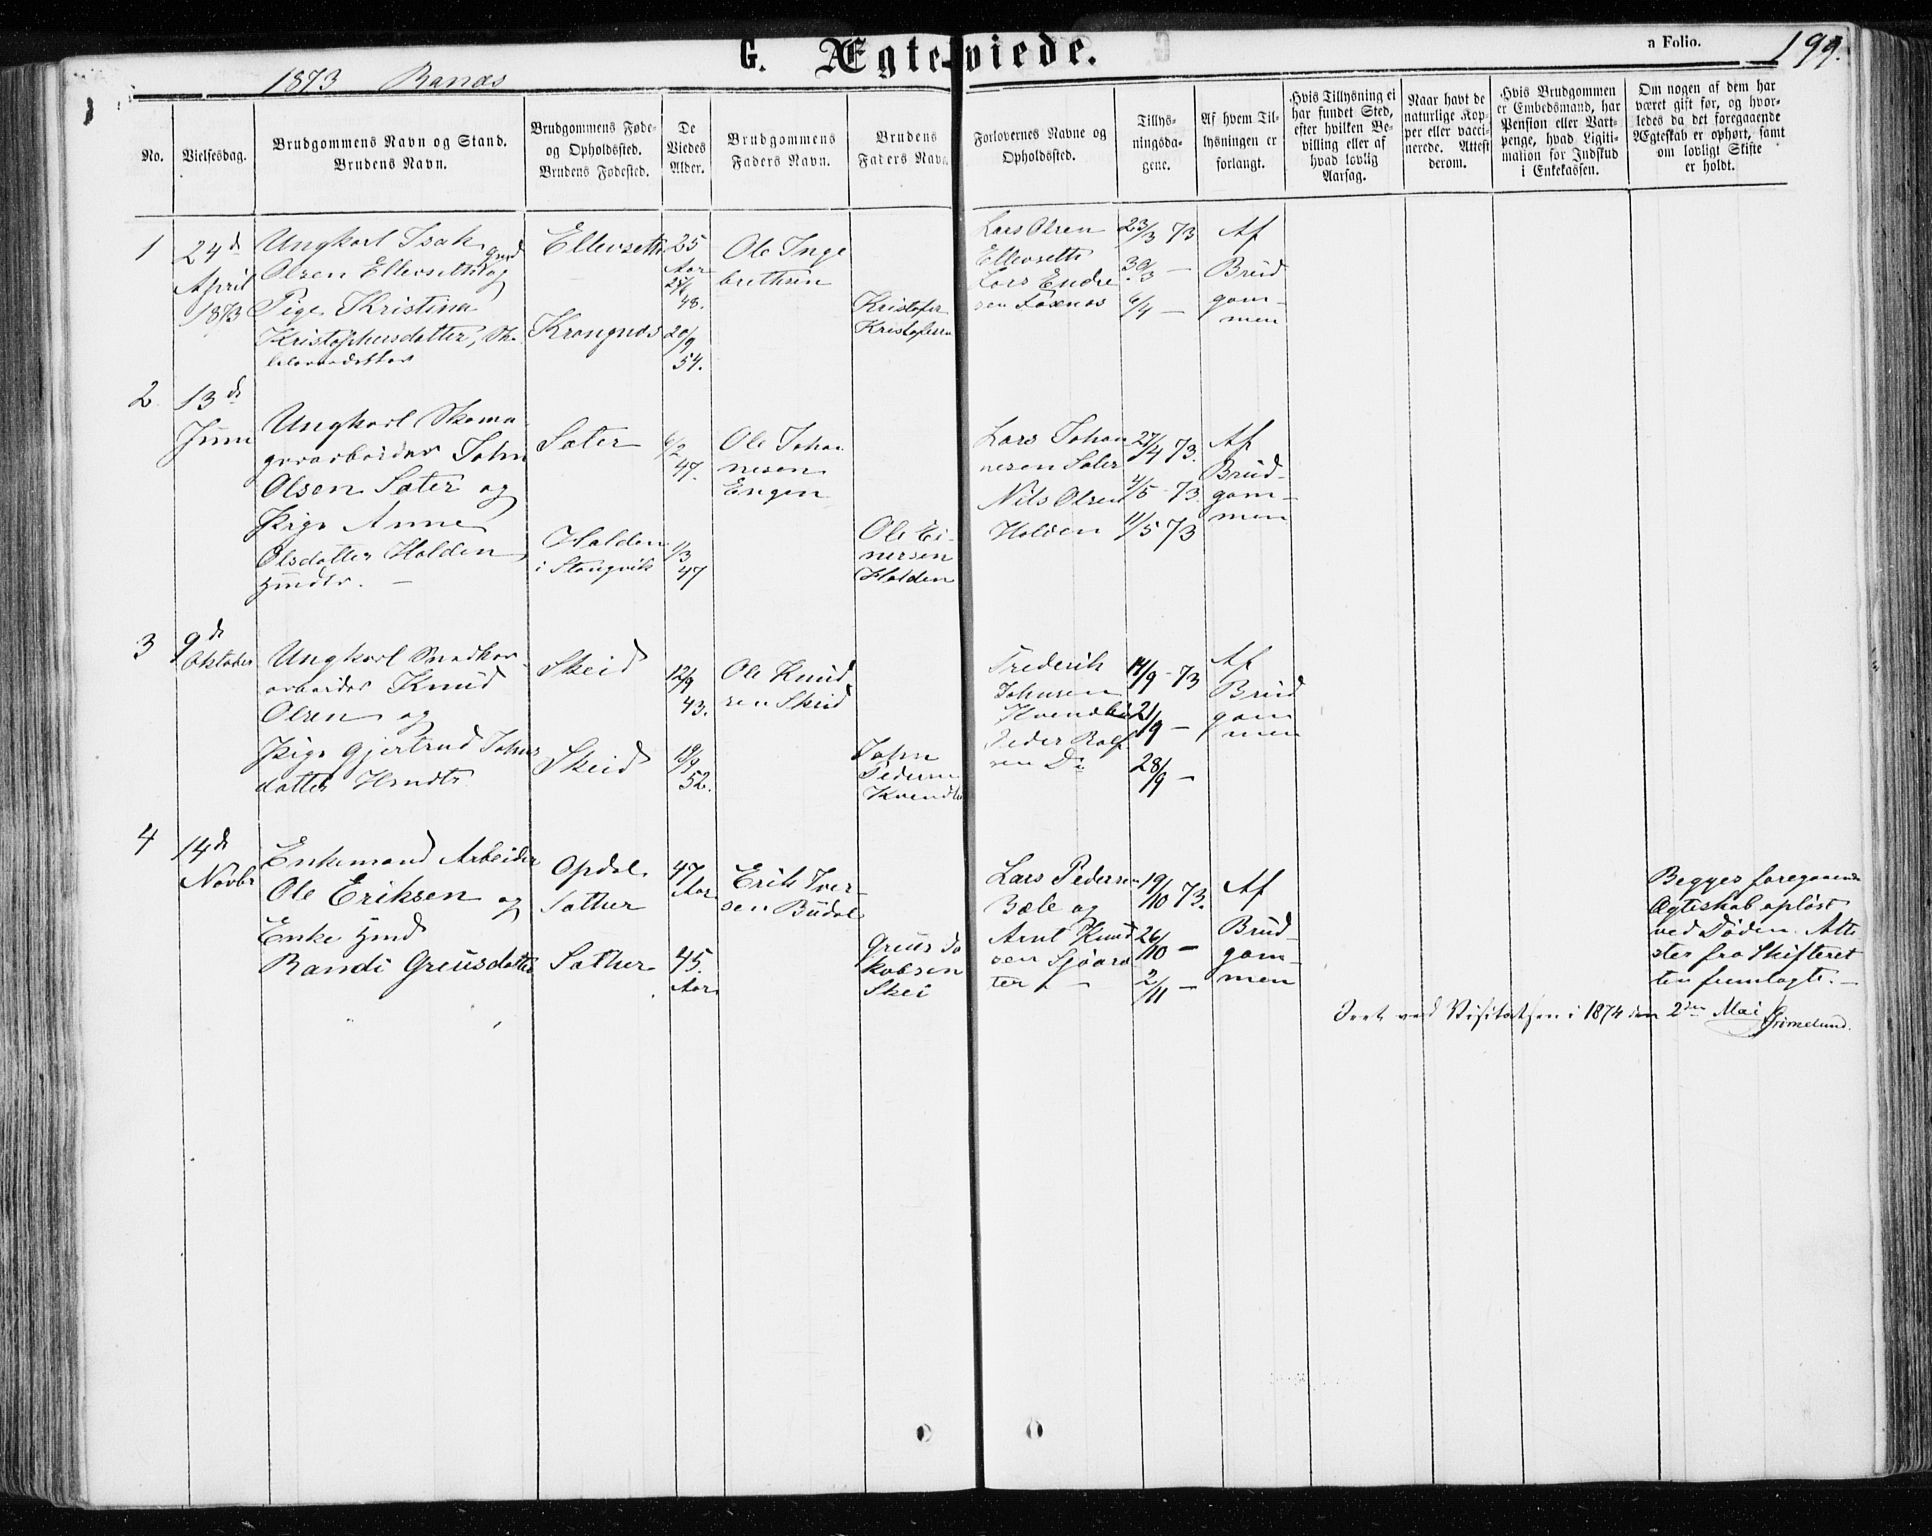 G. Ægteviede.
a Folio. 199.
1873 Ranæs
No.
Vielsesdag.
Brudgommens Navn og Stand.
Brudens Navn.
Brudgommens Føde-
og Opholdssted.
Brudens Fødested.
De
Viedes
Alder.
Brudgommens
Faders Navn.
Brudens
Faders Navn
Forlovernes Navne og
Opholdssted.
Tillys-
ningsda-
gene.
Af hvem Til-
lysningen er
forlangt.
Hvis Tillysning ei
har fundet Sted,
efter hvilken Be-
villing eller af
hvad lovlig
Aarsag.
Naar havt de
naturlige Kop-
per eller vacci-
nerede. Attest
derom.
Hvis Brudgommen
er Embedsmand, har
Pension eller Vart-
penge, hvad Ligiti-
mation for Indskud
i Enkekassen.
Om nogen af dem har
været gift før, og hvor-
ledes da det foregaaende
Ægteskab er ophørt, samt
om lovligt Skifte
er holdt.
1
24d
April
1873
Ungkarl Isak
Olsen Ellevsetta og
Pige Kristina
Kristophersdatter,
Ellevsette
Krangnæs
25
Aar
48.
20/9
54.
Ole Inge
brethsen
Kristofer
Kristofersen
Lars Olsen
Ellevsette
Lars Endre
sen Foxnæs
23/3 73
30/3 —
6/4 —
Af
Brud
gom-
men
2
13de
Juni
Ungkarl Skoma
gerarbeider John
Olsen Sæter og
Pige Anne
Olsdatter Halden,
Sæter
Halden
i Stangvik
6/2
47.
1/3
47
Ole Johan
nesen
Engen
Ole Ei-
nersen
Halden
Lars Johan
nesen Sæter
Nils Olsen
Halden
27/4 73.
4/5 - 73.
11/5 73
Af
Brud-
gom-
men
3
9de
Oktober
Ungkarl
arbeider Knud
Olsen og
Pige Gjertrud Johns
datter
Skeid
Skeid
12/9
43.
19/9
52.
Ole Knud
sen Skeid
John
Pedersen
Frederik
Johnsen
Peder Rolf
sen Do
14/9 - 73
21/9 —
28/9 —
Af
Brud
gom
men
4
14d
Novbr
Enkemand Arbeider
Ole Eriksen og
Enke
Randi Greusdatter
Opdal
Sæther
Sæther
47
Aar
45.
Aar
Erik Iver-
sen Budal
Greus Ja
kobsen
Skei
Lars Pedersen
Bæle og
Arnt Knud
sen Sjøasæ
ter
19/10 73.
26/10 —
2/11 —
Af
Brud-
gom-
men
Begges foregaaende
Ægteskab opløst
ved Døden. Atte
ster fra Skifteret
ten fremlagte. —
Seet ved Visitatsen i 1874 den 2den Mai Grimelund.